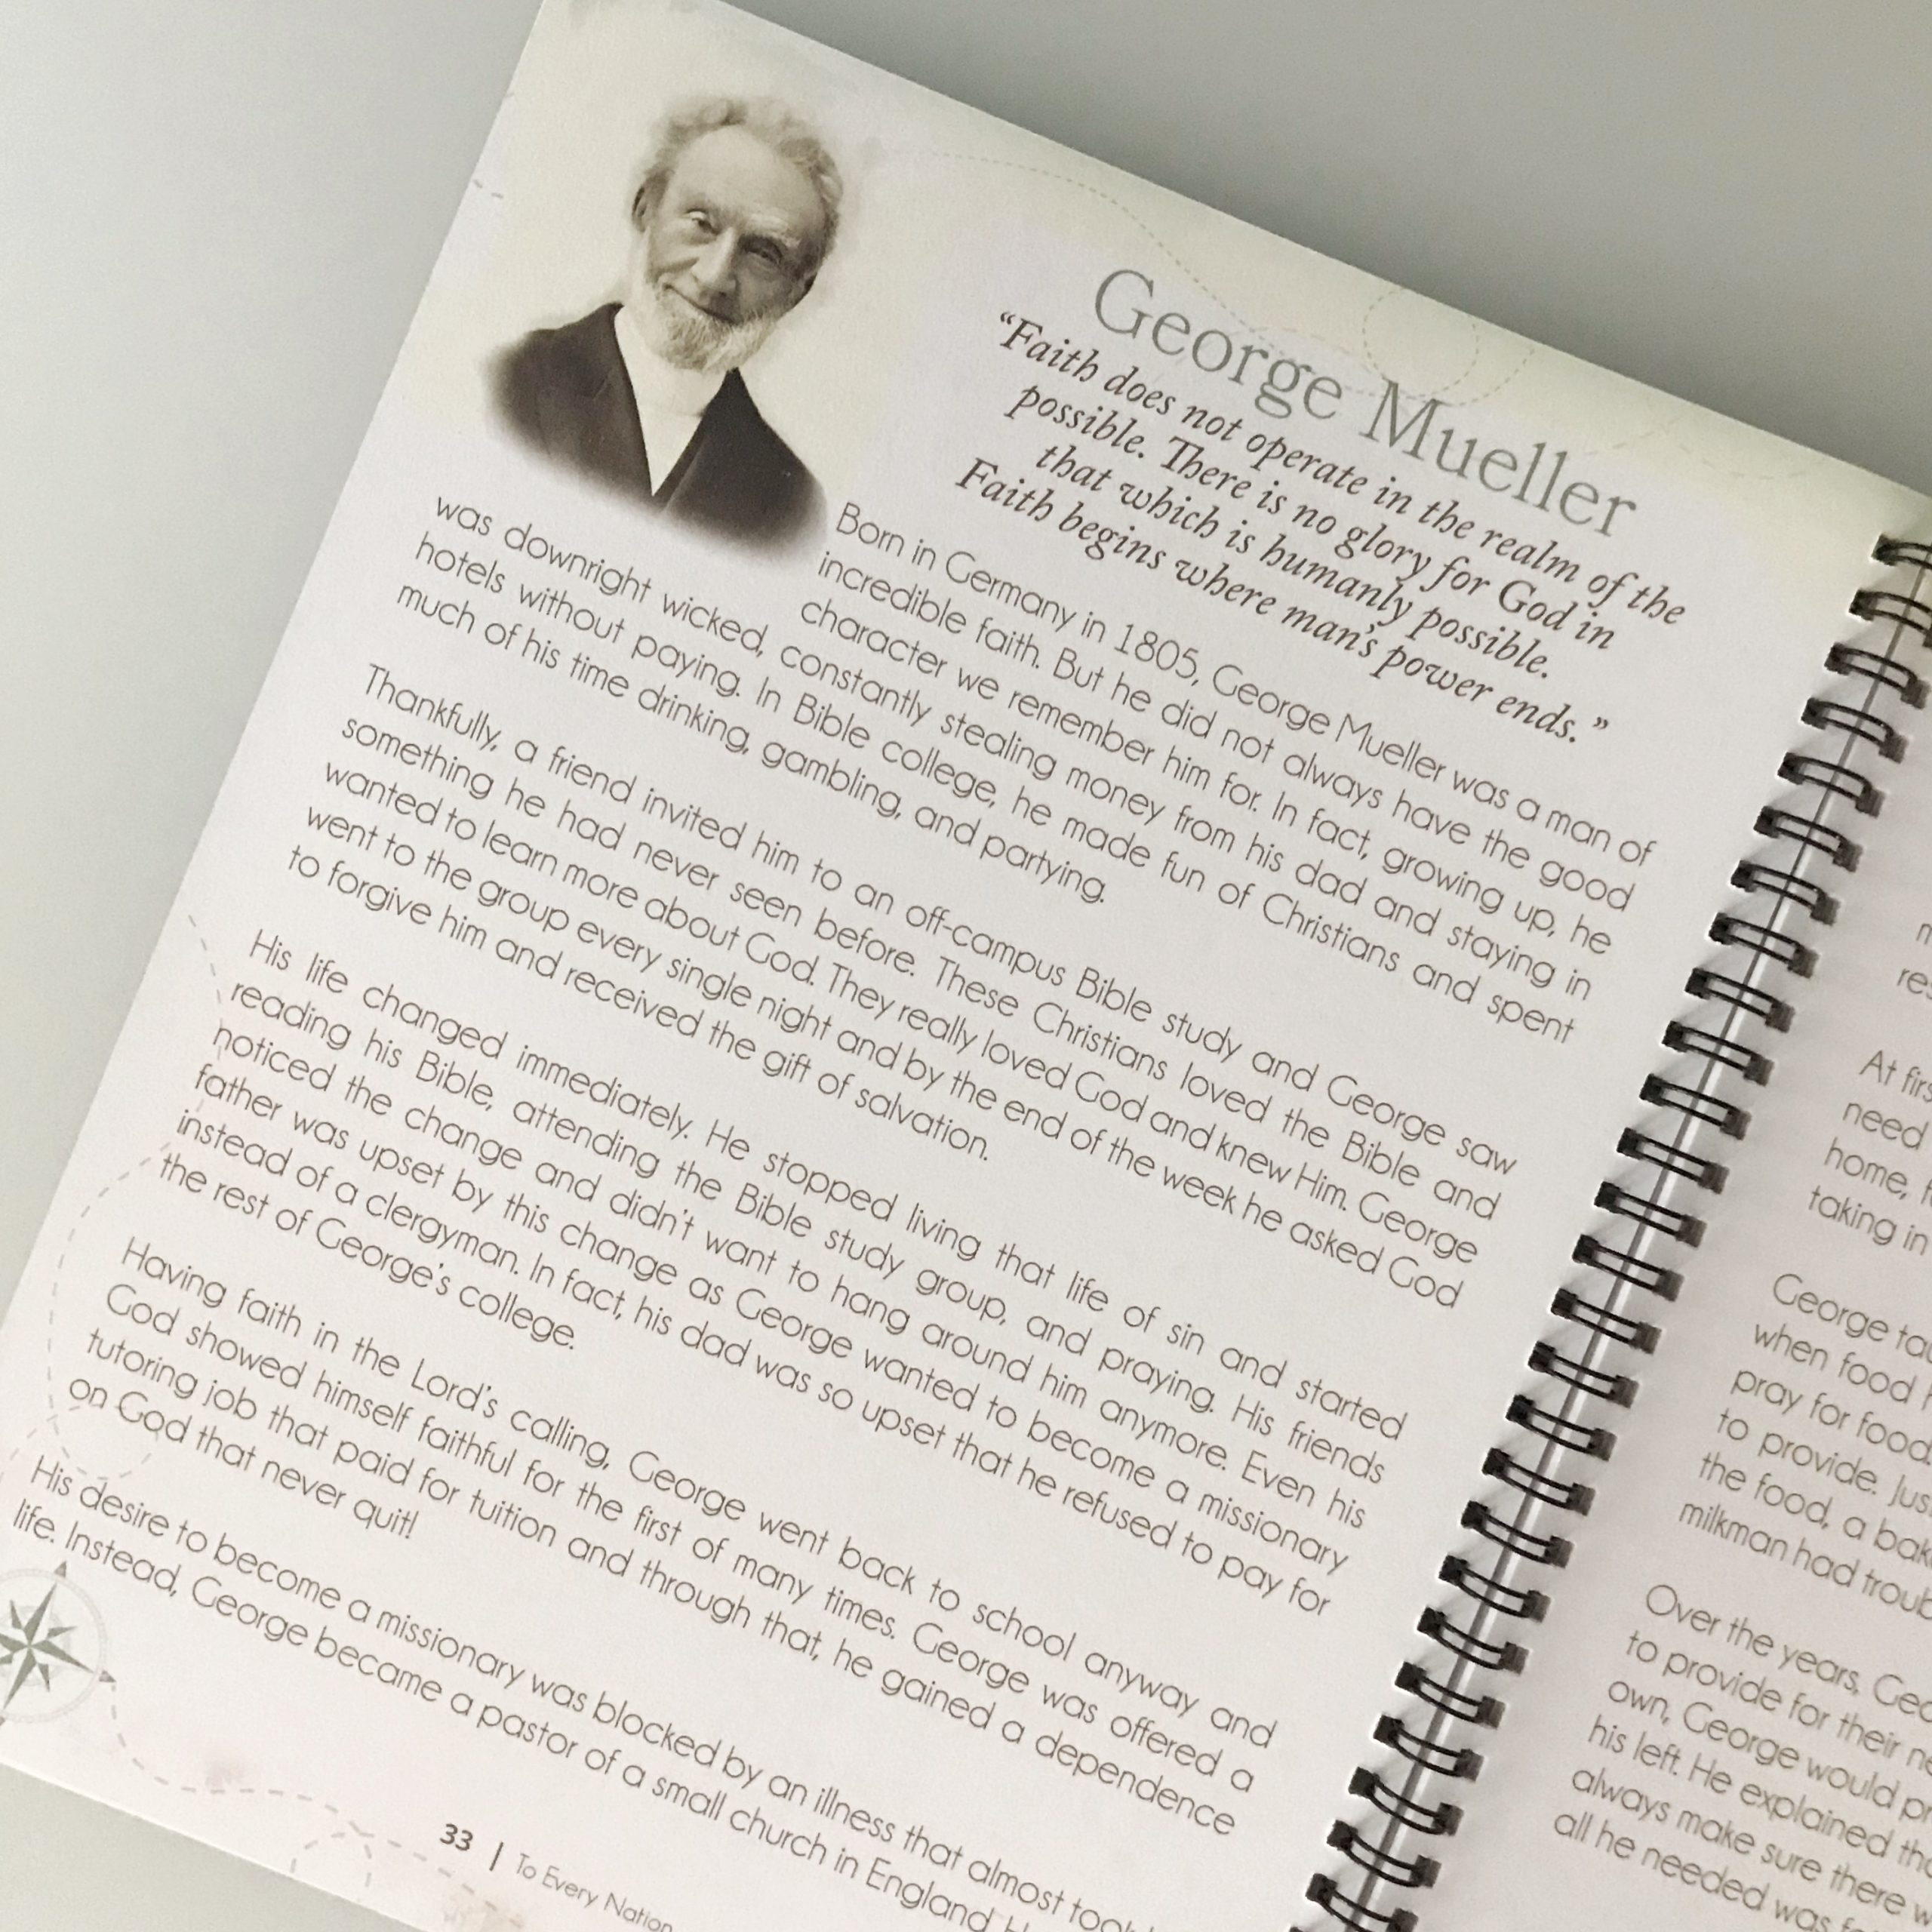 George Mueller
“Faith does not operate in the realm of the
possible. There is no glory for God in
that which is humanly possible.
Faith begins where man's power ends.”
Born in Germany in 1805, George Mueller was a man of
incredible faith. But he did not always have the good
character we remember him for. In fact, growing up, he
was downright wicked, constantly stealing money from his dad and staying in
hotels without paying. In Bible college, he made fun of Christians and spent
much of his time drinking, gambling, and partying.
Thankfully, a friend invited him to an off-campus Bible study and George saw
something he had never seen before. These Christians loved the Bible and
wanted to learn more about God. They really loved God and knew Him. George
went to the group every single night and by the end of the week he asked God
to forgive him and received the gift of salvation.
His life changed immediately. He stopped living that life of sin and started
reading his Bible, attending the Bible study group, and praying. His friends
noticed the change and didn't want to hang around him anymore. Even his
father was upset by this change as George wanted to become a missionary
instead of a clergyman. In fact, his dad was so upset that he refused to pay for
the rest of George's college.
Having faith in the Lord's calling, George went back to school anyway and
God showed himself faithful for the first of many times. George was offered a
tutoring job that paid for tuition and through that, he gained a dependence
on God that never quit!
His desire to become a missionary was blocked by an illness that almost took
life. Instead, George became a pastor of a small church in England.
33 | To Every Nation
At
need
home,
taking in
George
when food
pray for food.
to provide.
the food, a
milkman had
Over the years,
to provide for their
own, George would
his left. He explained
always make sure there
all he needed was